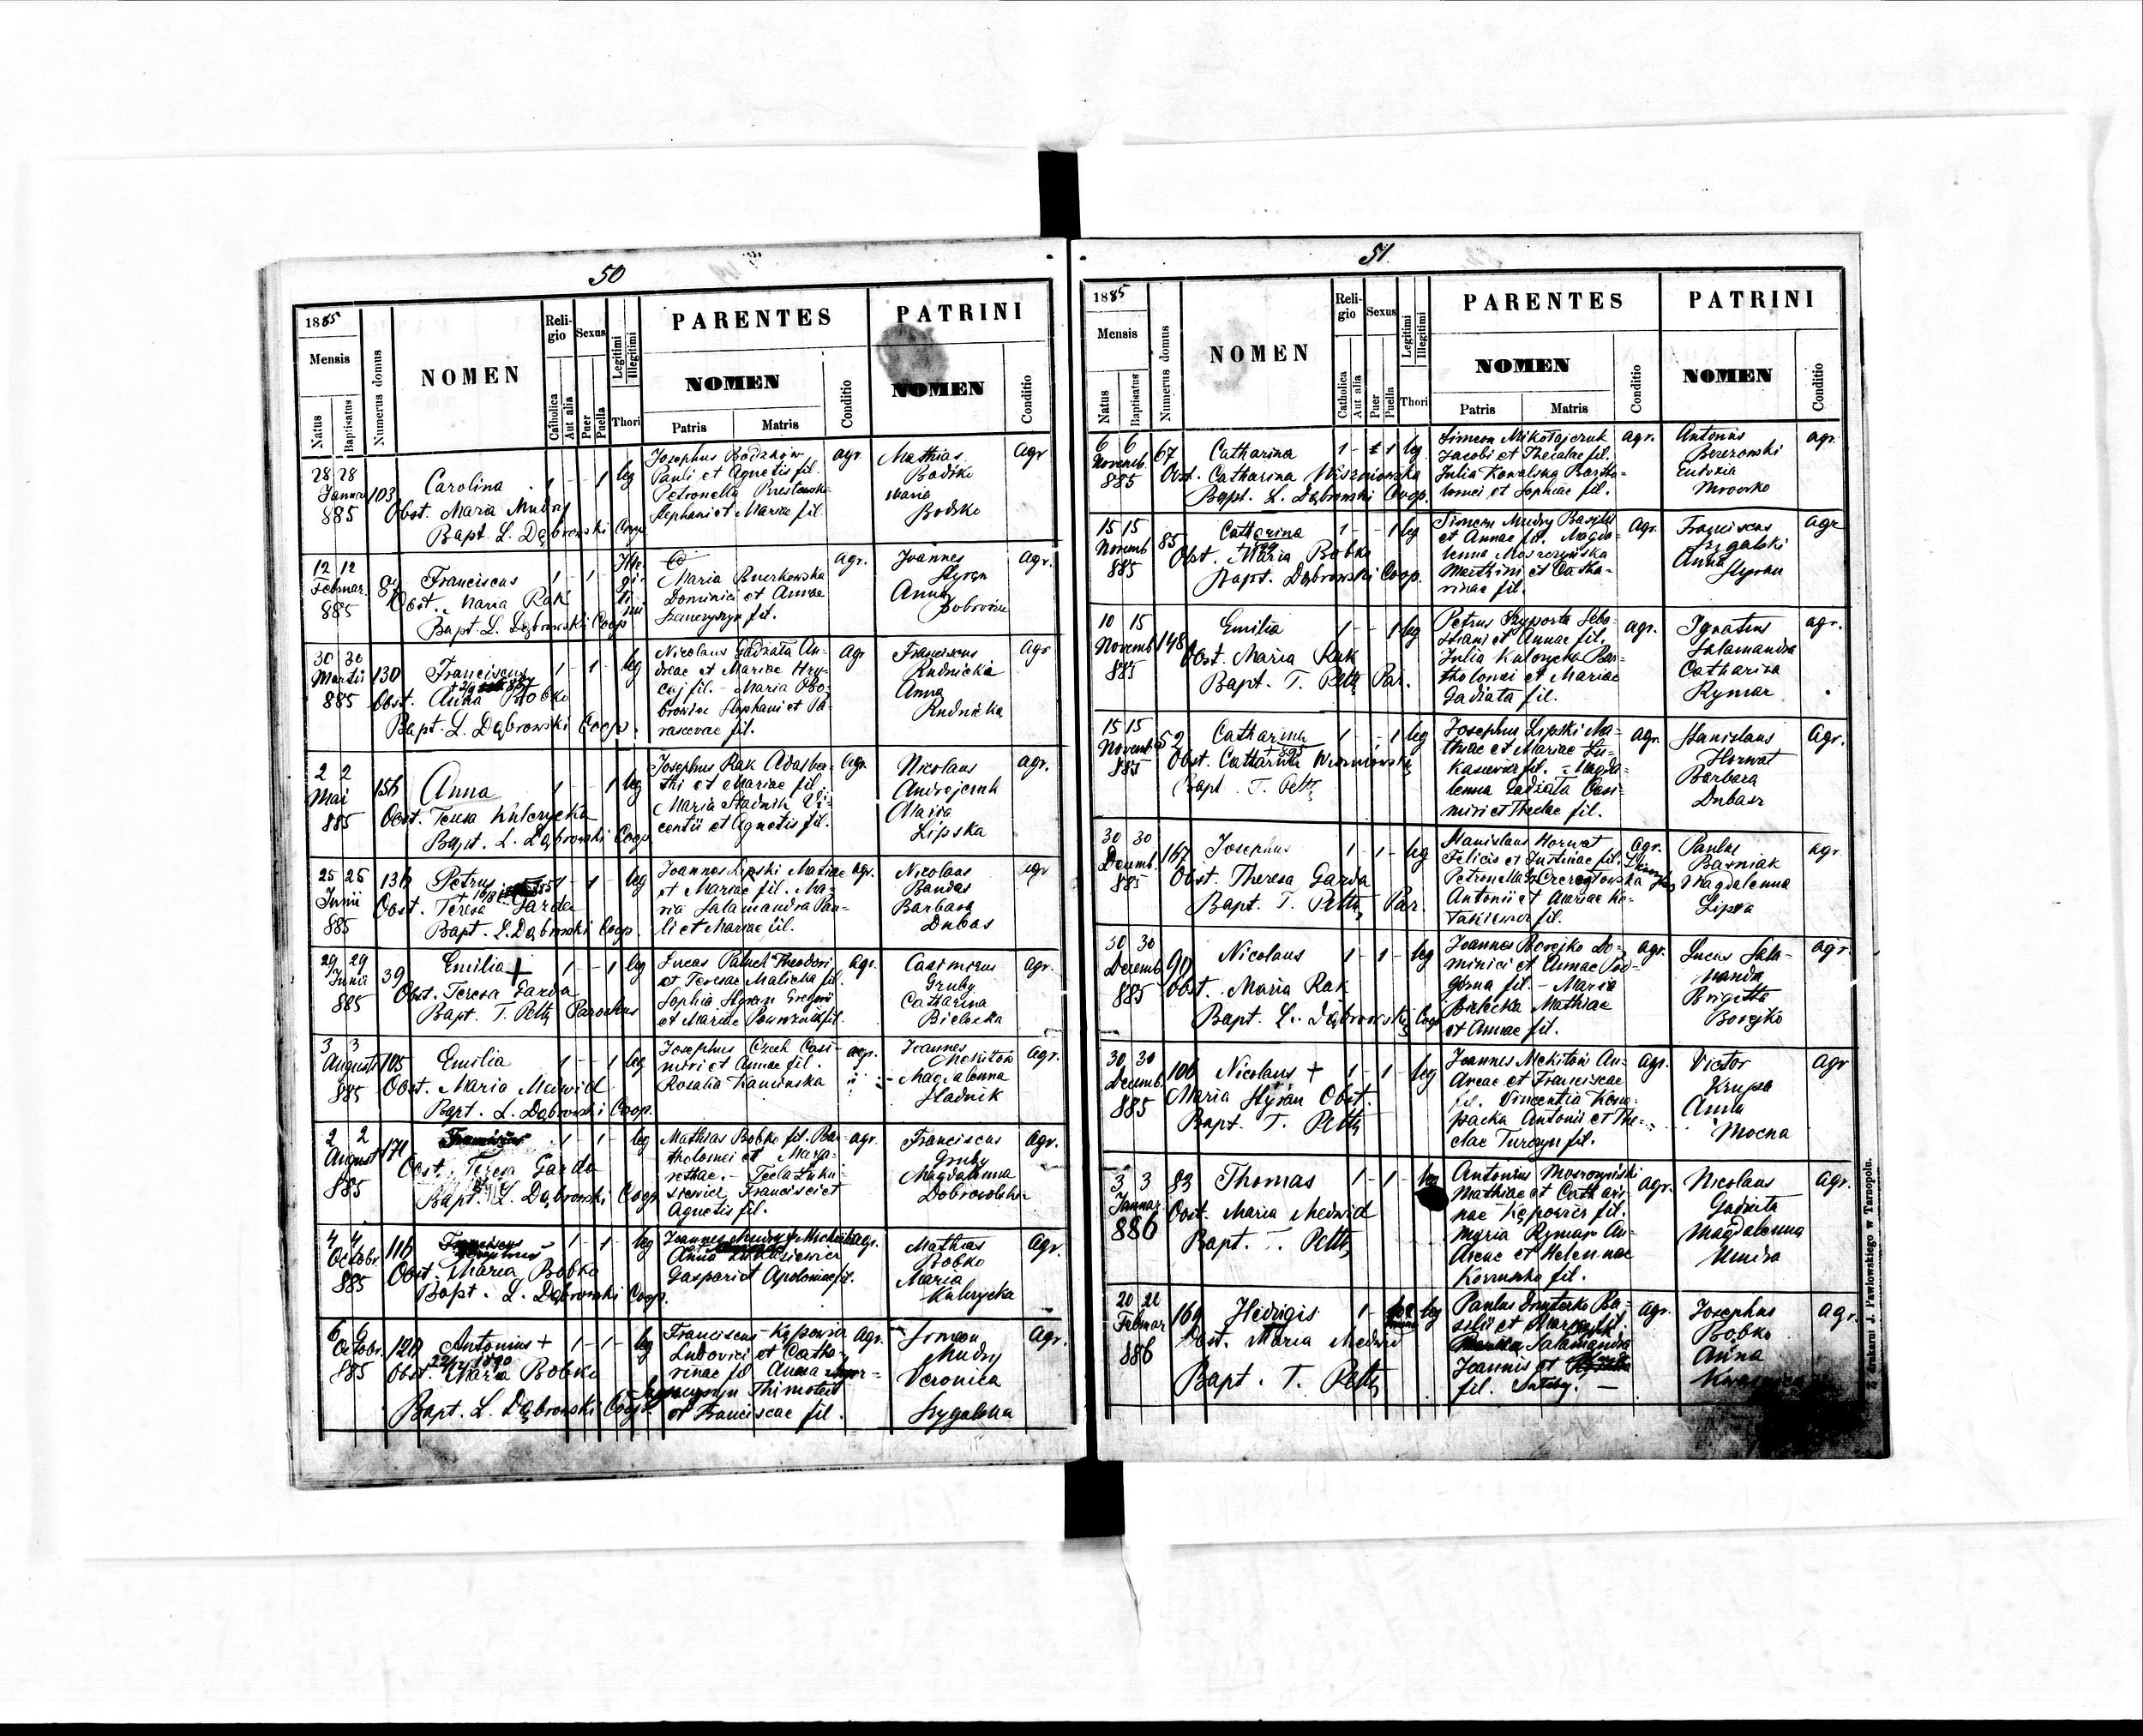 50
1885
Mensis
Natus
Baptisatus
Numerus domus
NOMEN
Religio
Catholica
Aut alia
Sexus
Puer
Puella
Legitimi
Illegitimi
Thori
PARENTES
NOMEN
Patris
Matris
Conditio
PATRINI
NOMEN
Conditio
28 28 Januar 885 103 Carolina 1 - - 1 leg
Obst. Maria Mudry
Bapt. L. Dąbrowski Coop
Josephus
Pauli et Agnetis fil.
Petronella
Stephani et Mariae fil
agr
Mathias
Maria
agr
12 12 Februar. 885 Franciscus 1 - 1 - Ille gi ti mi
Obst. Maria Rak
Bapt. L. Dąbrowski Coop
Maria
Dominici et Annae
fil.
agr.
Joannes
Styran
Anna
agr.
30 30 Martii 885 130 Franciscus 1 - 1 - leg
Obst. Anna Bobko
Bapt. L. Dąbrowski Coop.
Nicolaus Gadzała An-
dreae et Mariae Hry-
caj fil. - Maria Do-
browlac Stephani et Pa-
rascevae fil.
agr
Franciscus
Rudnicki
Anna
Rudnicka
agr
2 2 Mai 885 156 Anna 1 - - 1 leg
Obst. Teresa Kulczycka
Bapt. L. Dąbrowski Coop.
Josephus Rak Adalber-
thi et Mariae fil.
Maria Stadnik Vi-
centii et Agnetis fil.
agr.
Nicolaus
Andrejczuk
Maria
Lipska
agr.
25 25 Junii 885 136 Petrus 1 - 1 - leg
Obst. Teresa Garda
Bapt. L. Dąbrowski Coop.
Joannes Lipski Matiae
et Mariae fil. Ma-
ria Salamandra Pau-
li et Mariae fil.
agr.
Nicolaus
Bandas
Barbara
Dubas
agr
29 29 Junii 885 39 Emilia + 1 - - 1 leg
Obst. Teresa Garda
Bapt. T. Petz Parochus
Lucas Paluch Theodori
et Teresae Malicka fil.
Sophia Styran Gregorii
et Mariae fil.
agr.
Casimirus
Gruby
Catharina
Bielecka
agr.
3 3 Augusti 885 105 Emilia 1 - - 1 leg
Obst. Maria Medwid
Bapt. L. Dąbrowski Coop.
Josephus Czech Casi-
miri et Annae fil.
Rosalia Kaminska
agr.
Joannes
Mekitów
Magdalenna
Stadnik
agr.
2 2 Augusti 885 171 1 - 1 - leg
Obst. Teresa Garda
Bapt. L. Dąbrowski Coop
Mathias Bobko fil. Bar-
tholomei et Marga-
rethae. - Tecla Luka-
siewicz Francisci et
Agnetis fil.
agr.
Franciscus
Gruby
Magdalenna
Dobrowolska
agr.
4 4 Octobr. 885 116 1 - 1 - leg
Obst. Maria Bobko
Bapt. L. Dąbrowski Coop.
Joannes Mudry
Anna Lukasiewicz
Gaspari et Apoloniae fil.
agr.
Mathias
Bobko
Maria
Kulczycka
agr.
6 6 Octobr. 885 120 Antonius + 1 - 1 - leg
Obst. Maria Bobko
Bapt. L. Dąbrowski Coop.
Franciscus Kępowicz
Ludovici et Catha-
rinae fil Anna
Thimotei
et Franciscae fil.
agr.
Simeon
Mudry
Veronica
Szygalska
agr.
51
1885
Mensis
Natus
Baptisatus
Numerus domus
NOMEN
Religio
Catholica
Aut alia
Sexus
Puer
Puella
Legitimi
Illegitimi
Thori
PARENTES
NOMEN
Patris
Matris
Conditio
PATRINI
NOMEN
Conditio
6 6 Novemb. 885 67 Catharina 1 - 1 leg
Obst. Catharina Wiszniowska
Bapt. L. Dąbrowski Coop.
Simeon Mikołajczuk
Jacobi et Theclae fil.
Julia Kowalska Bartho-
lomei et Sophiae fil.
agr.
Antonius
Berezowski
Eudoxia
Mrowko
agr.
15 15 Novemb 885 85 Catharina 1 - - 1 leg
Obst. Maria Bobko
Bapt. Dąbrowski Coop.
Simeon Mudry Basilii
et Annae fil. Magda-
lenna Moszczyńska
Matthiri et Catha-
rinae fil.
agr.
Franciscus
Szygalski
Anna
Styran
agr
10 15 Novemb 885 148 Emilia 1 - - 1 leg
Obst. Maria Rak
Bapt. T. Petz Par.
Petrus Przyszorta Seba-
stiani et Annae fil.
Julia Kulczycka Bar-
tholomei et Mariae
Gadzała fil.
agr.
Ignatius
Salamandra
Catharina
Rymar
agr.
15 15 Novemb 885 52 Catharina 1 - - 1 leg
+ 895
Obst. Catharina Wiszniowska
Bapt. T. Petz
Josephus Lipski Ma-
thiae et Mariae Lu-
kasiewicz fil. - Magda-
lenna Gadzała Casi-
miri et Theclae fil.
agr.
Stanislaus
Horwat
Barbara
Dubas
agr.
30 30 Decemb. 885 167 Josephus 1 - 1 - leg
Obst. Theresa Garda
Bapt. T. Petz Par.
Stanislaus Horwat
Felicis et Justinae fil.
Petronella
Antonii et Mariae
fil.
agr.
Paulus
Barniak
Magdalenna
Lipska
agr
30 30 Decemb 885 90 Nicolaus 1 - 1 - leg
Obst. Maria Rak
Bapt. L. Dąbrowski Coop
Joannes Borejko Do-
minici et Annae Pod-
górna fil. - Maria
Bielecka Mathiae
et Annae fil.
agr.
Lucas Sala-
mandra
Brigitta
Borejko
agr.
30 30 Decemb. 885 106 Nicolaus + 1 - 1 - leg
Maria Styran Obst.
Bapt. T. Petz
Joannes Mekitów An-
dreae et Franciscae
fil. Vincentia Kono-
packa Antonii et The-
clae Turczyn fil.
agr.
Victor
Krupa
Anna
Mocna
agr
3 3 Januar 886 83 Thomas 1 - 1 - leg
Obst. Maria Medwid
Bapt. T. Petz
Antonius Moszczyński
Mathiae et Cathari-
nae Kępowicz fil.
Maria Rymar An-
dreae et Helennae
fil.
agr.
Nicolaus
Gadzała
Magdalenna
Mudra
agr.
20 21 Februar 886 169 Hedvigis 1 - leg
Obst. Maria Medwid
Bapt. T. Petz
Paulus Dmyterko Ba-
silii et fil.
Salamandra
Joannis et
fil.
agr.
Josephus
Bobko
Anna
agr.
Z drukarni J. Pawłowskiego w Tarnopolu.